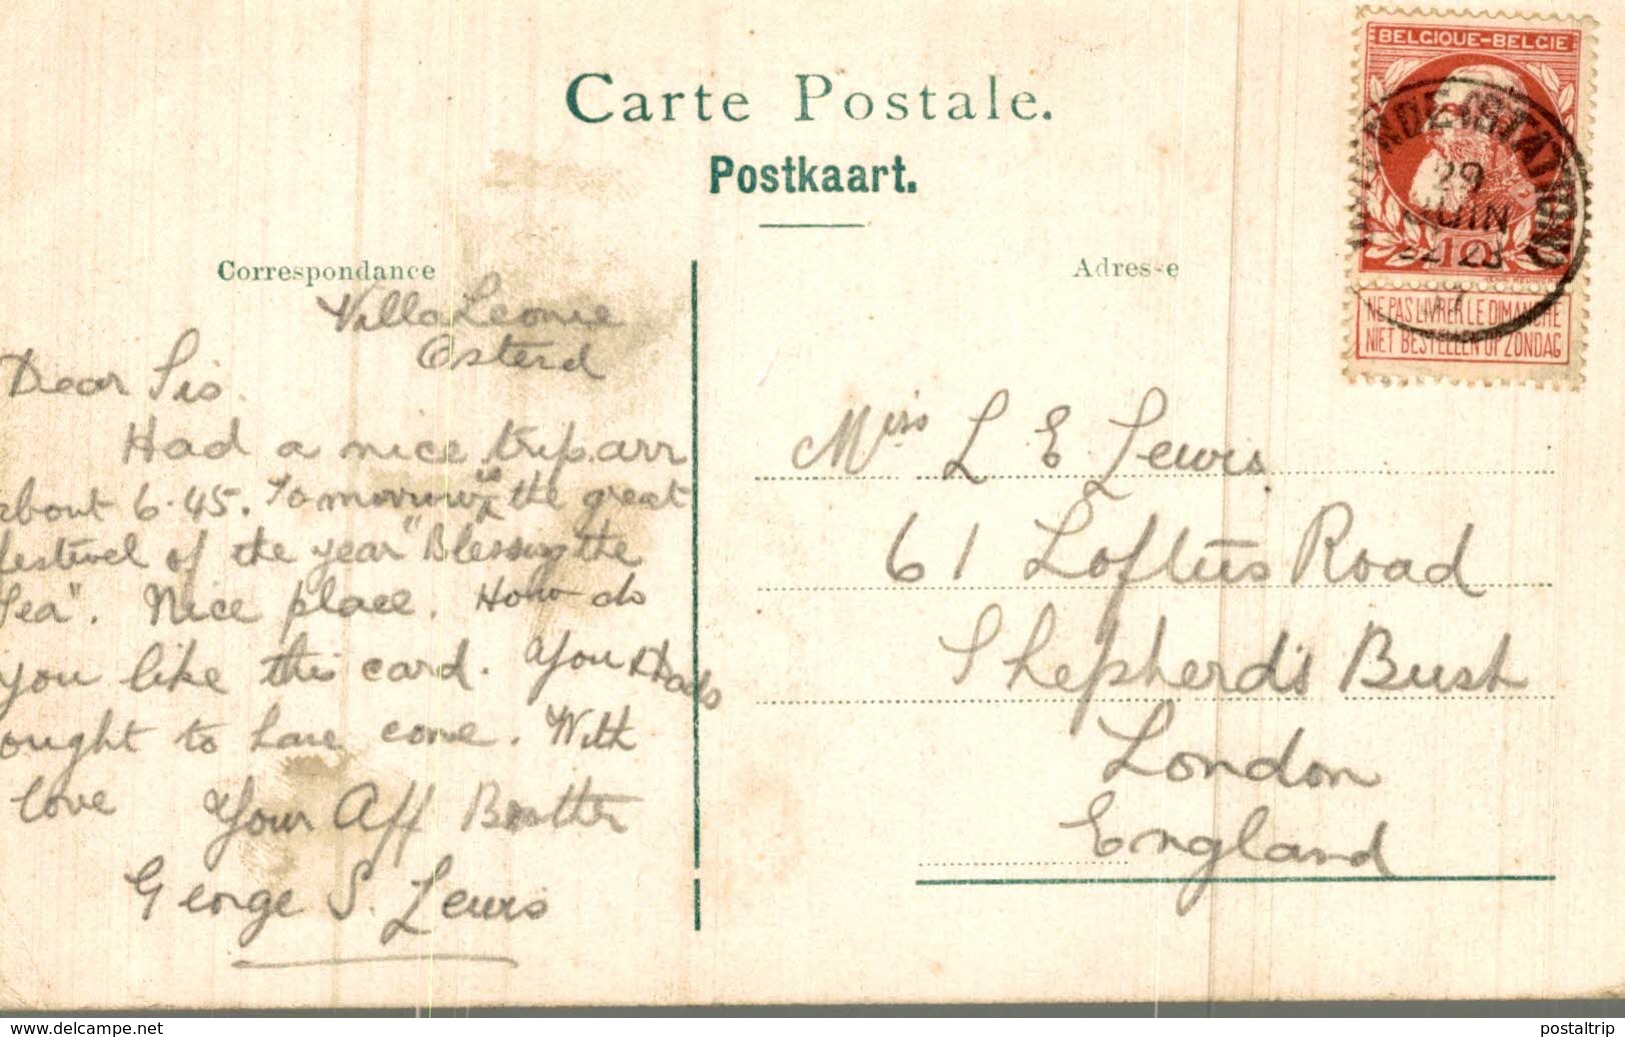 Carte Postale.
Postkaart.
Correspondance
Adresse
BELGIQUE-BELGIE
29
JUIN
22-23
10
NE PAS LIVRER LE DIMANCHE
NIET BESTELLEN OP ZONDAG
Villa Leonie
Osterd
Dear Sis.
Had a nice trip. arr
about 6.45. Tomorrow is the great
festivel of the year "Blessing the
Sea". Nice place. How do
you like this card. You & Dads
ought to have come. With
love Your Aff Brother
George S. Lewis
Miss L E Lewis.
61 Loftus Road
Shepherd's Bush
London
England
www.delcampe.net
postaltrip